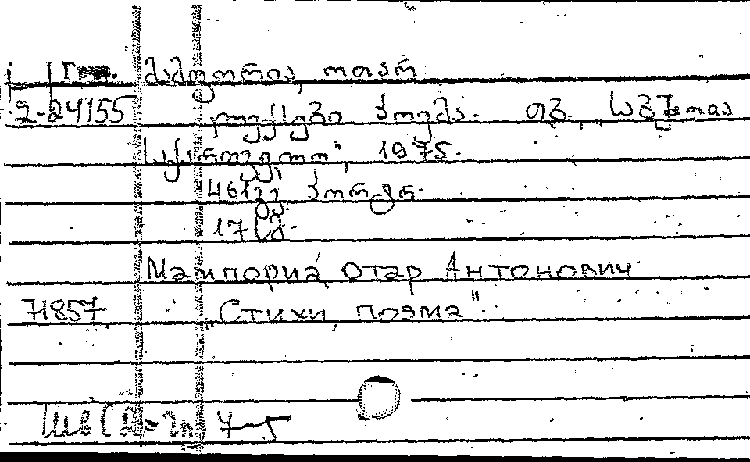 მამფორია, ოთარ
2-24155 ლექსები პოემა. თბ., „საბჭოთა
საქართველო", 1975.
461გვ. პორტრ.
17სმ.
Мампория, Отар Антонович
71857 „Стихи, поэма".